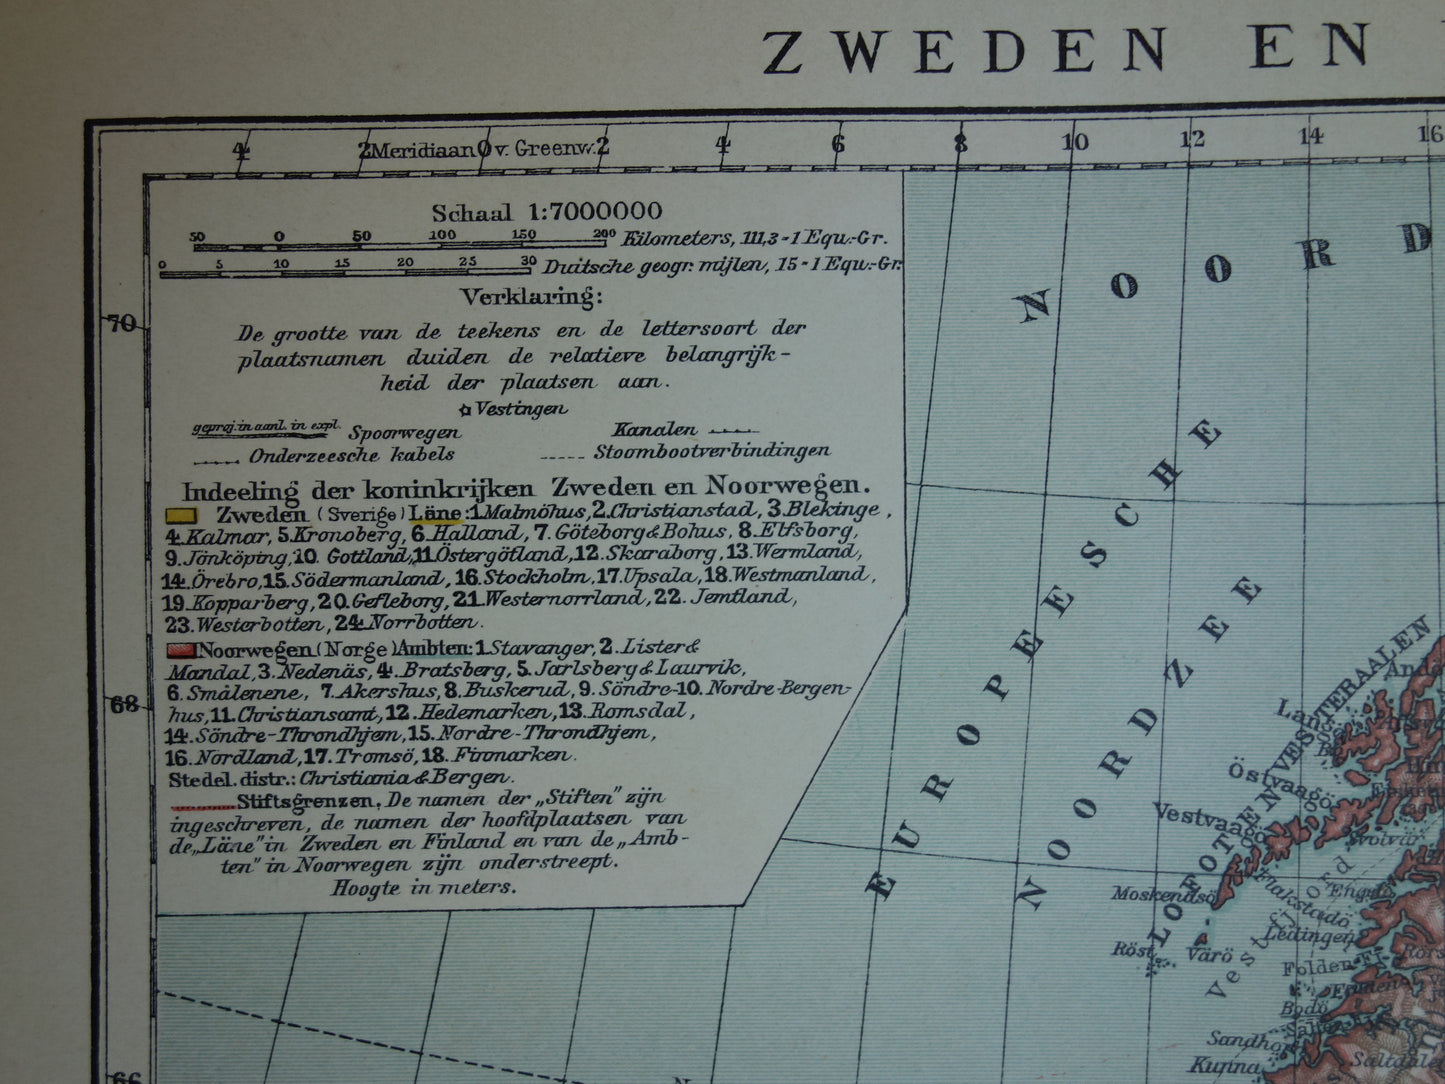 ZWEDEN EN
4 2 Meridiaan 0 v. Greenw. 2 4 6 8 10 12 14 16
Schaal 1:7000000
50 0 50 100 150 200 Kilometers, 111,3 - 1 Equ.-Gr.
0 5 10 15 20 25 30 Duitsche geogr. mijlen, 15 - 1 Equ.-Gr.
Verklaring:
De grootte van de teekens en de lettersoort der
plaatsnamen duiden de relatieve belangrijk-
heid der plaatsen aan.
Vestingen
geproj. in aanl. in expl. Spoorwegen Kanalen
Onderzeesche kabels Stoombootverbindingen
Indeeling der koninkrijken Zweden en Noorwegen.
Zweden (Sverige) Läne: 1. Malmöhus, 2. Christianstad, 3. Blekinge,
4. Kalmar, 5. Kronoberg, 6. Halland, 7. Göteborg & Bohus, 8. Elfsborg,
9. Jönköping, 10. Gottland, 11. Östergötland, 12. Skaraborg, 13. Wermland,
14. Örebro, 15. Södermanland, 16. Stockholm, 17. Upsala, 18. Westmanland,
19. Kopparberg, 20. Gefleborg, 21. Westernorrland, 22. Jemtland,
23. Westerbotten, 24. Norrbotten.
Noorwegen (Norge) Ambten: 1. Stavanger, 2. Lister &
Mandal, 3. Nedenäs, 4. Bratsberg, 5. Jarlsberg & Laurvik,
6. Smålenene, 7. Akershus, 8. Buskerud, 9. Söndre- 10. Nordre-Bergen-
hus, 11. Christiansamt, 12. Hedemarken, 13. Romsdal,
14. Söndre-Throndhjem, 15. Nordre-Throndhjem,
16. Nordland, 17. Tromsö, 18. Finmarken.
Stedel. distr.: Christiania & Bergen.
Stiftsgrenzen. De namen der „Stiften" zijn
ingeschreven, de namen der hoofdplaatsen van
de „Läne" in Zweden en Finland en van de „Amb-
ten" in Noorwegen zijn onderstreept.
Hoogte in meters.
70
68
66
NOORD
EUROPESCHE
NOORDZEE
VESTERAALEN
LOFOTEN
Östvaagö
Vestvaagö
Flakstadö
Moskenäsö
Röst
Värö
Vestfjord
Ledingen
Folden-Fj.
Bodö
Sandhor
Kunna